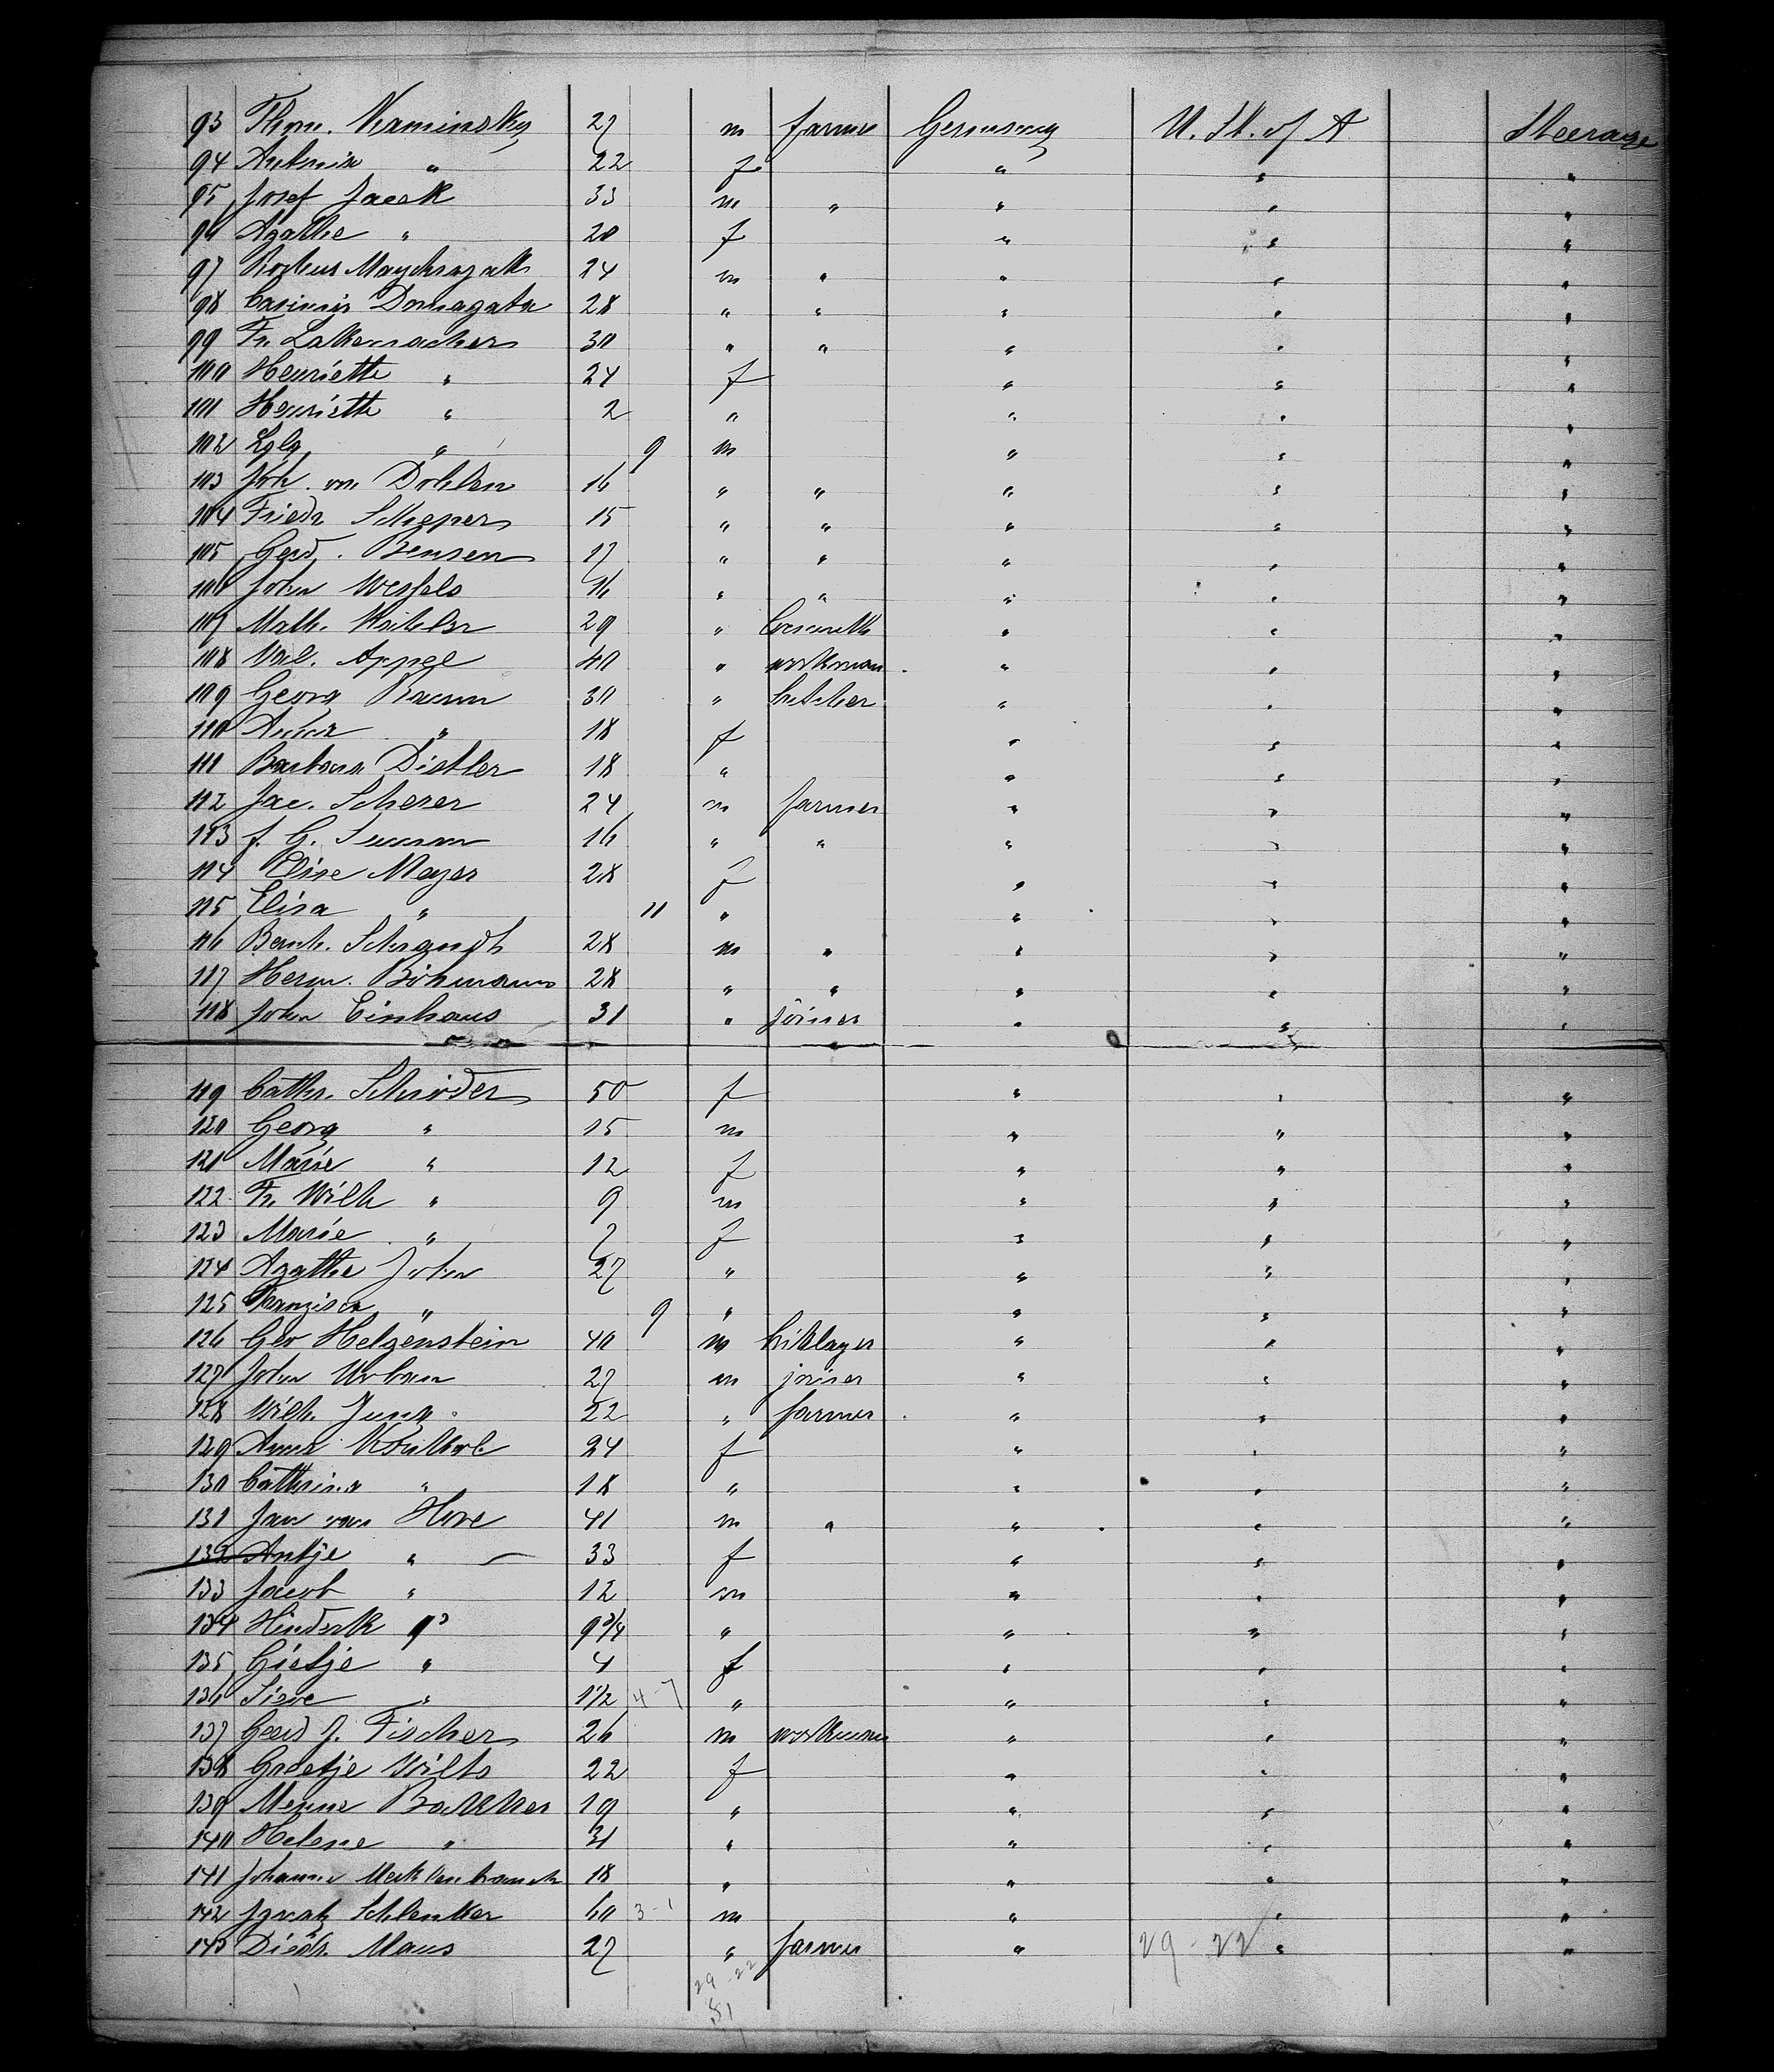 93 Thom. Kaminsky 27 m farmer Germany U. St. of A Steerage
94 Antonia " 22 f " " "
95 Josef Jacek 33 m " " " "
96 Agathe " 20 f " " "
97 24 m " " " "
98 Casimir Domagala 28 " " " " "
99 Fr. Lakemacher 30 " " " " "
100 Henriette " 24 f " " "
101 Henriette " 2 " " " "
102 " 9 m " " "
103 Joh. von Dohlen 16 " " " " "
104 Friedr Scheper 15 " " " " "
105 Gerd. Bensen 17 " " " " "
106 John Wessels 16 " " " " "
107 Math. 29 " " " "
108 Val. Appel 40 " workman " " "
109 Georg Baum 30 " butcher " " "
110 Anna " 18 f " " "
111 Barbara Distler 18 " " " "
112 Jac. Scherer 24 m farmer " " "
113 J. G. 16 " " " " "
114 Elise Mayer 28 f " " "
115 Elisa " 11 " " " "
116 Bernh. 28 m " " " "
117 Herm. Böhmann 28 " " " " "
118 John Einhaus 31 " joiner " " "
119 Cathr. Schröder 50 f " " "
120 Georg " 15 m " " "
121 Marie " 12 f " " "
122 Fr. Wilh " 9 m " " "
123 Marie " 7 f " " "
124 Agathe John 27 " " " "
125 Franzisca " 9 " " " "
126 Geo Helgenstein 40 m briklayer " " "
127 John Urban 27 m joiner " " "
128 Wilh. Jung 22 " farmer " " "
129 Anna 24 f " " "
130 Cathrina " 18 " " " "
131 Jan van Hove 41 m " " " "
132 Antje " 33 f " " "
133 Jacob " 12 m " " "
134 Hinderk " 9 3/4 " " " "
135 Gietje " 4 f " " "
136 " 1 1/2 4-7 " " " "
137 Gerd J. Fischer 26 m workman " " "
138 Graetje Wilts 22 f " " "
139 Menna Bakker 19 " " " "
140 Helene " 31 " " " "
141 Johanne 18 " " " "
142 Ignatz Schlenker 60 3-1 m " " "
143 Diedr. Maus 27 " farmer " 29-22 " "
29-22
51